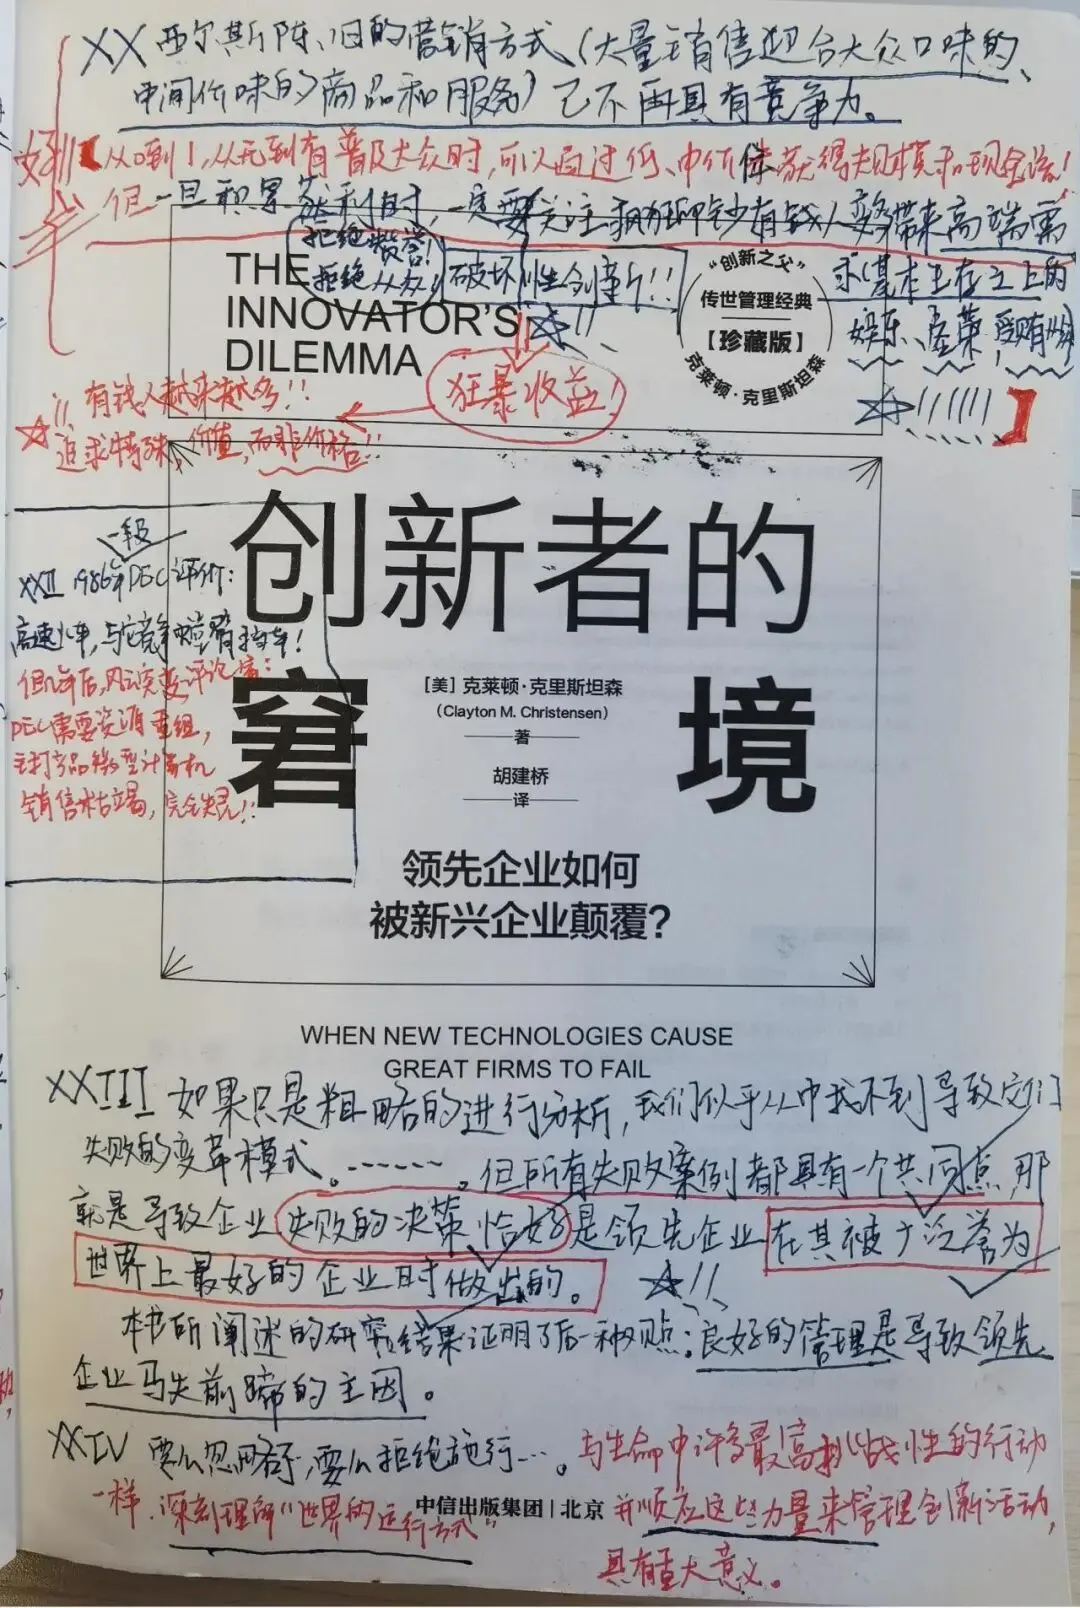 XX 西尔斯陈旧的营销方式(大量销售迎合大众口味的、
中间价味的商品和服务)已不再具有竞争力。
从0到1,从无到有普及大众时,可以通过低、中价 获得规模和现金流!
但一旦积累 时,一定要关注 有钱人 带来高端需
求(基本生存之上的
娱乐、
拒绝赞誉!
拒绝从众!
破坏性创新!!
THE
INNOVATOR'S
DILEMMA
“创新之父”
传世管理经典
【珍藏版】
克莱顿·克里斯坦森
狂暴收益!
有钱人越来越多!!
追求特殊,价值,而非价格!!
创新者的
窘境
一段
XXII 1986年DEC评价:
高速火车,与它竞争
但几年后,风云突变,评论
DEC需要资源重组,
主打产品微型计算机
销售
[美]克莱顿·克里斯坦森
(Clayton M. Christensen)
著
胡建桥
译
领先企业如何
被新兴企业颠覆?
WHEN NEW TECHNOLOGIES CAUSE
GREAT FIRMS TO FAIL
XXIII 如果只是粗略的进行分析,我们似乎从中找不到导致它们
失败的变革模式。……。但所有失败案例都具有一个共同点,那
就是导致企业失败的决策恰好是领先企业在其被广泛誉为
世界上最好的企业时做出的。
本书所阐述的研究结果证明了后一种观点:良好的管理是导致领先
企业马失前蹄的主因。
XXIV 要么忽略 ,要么拒绝施行…。与生命中许多最高挑战性的行动
一样,深刻理解“世界的运行方式”
中信出版集团 | 北京
并顺应这些力量来管理创新活动,
具有重大意义。